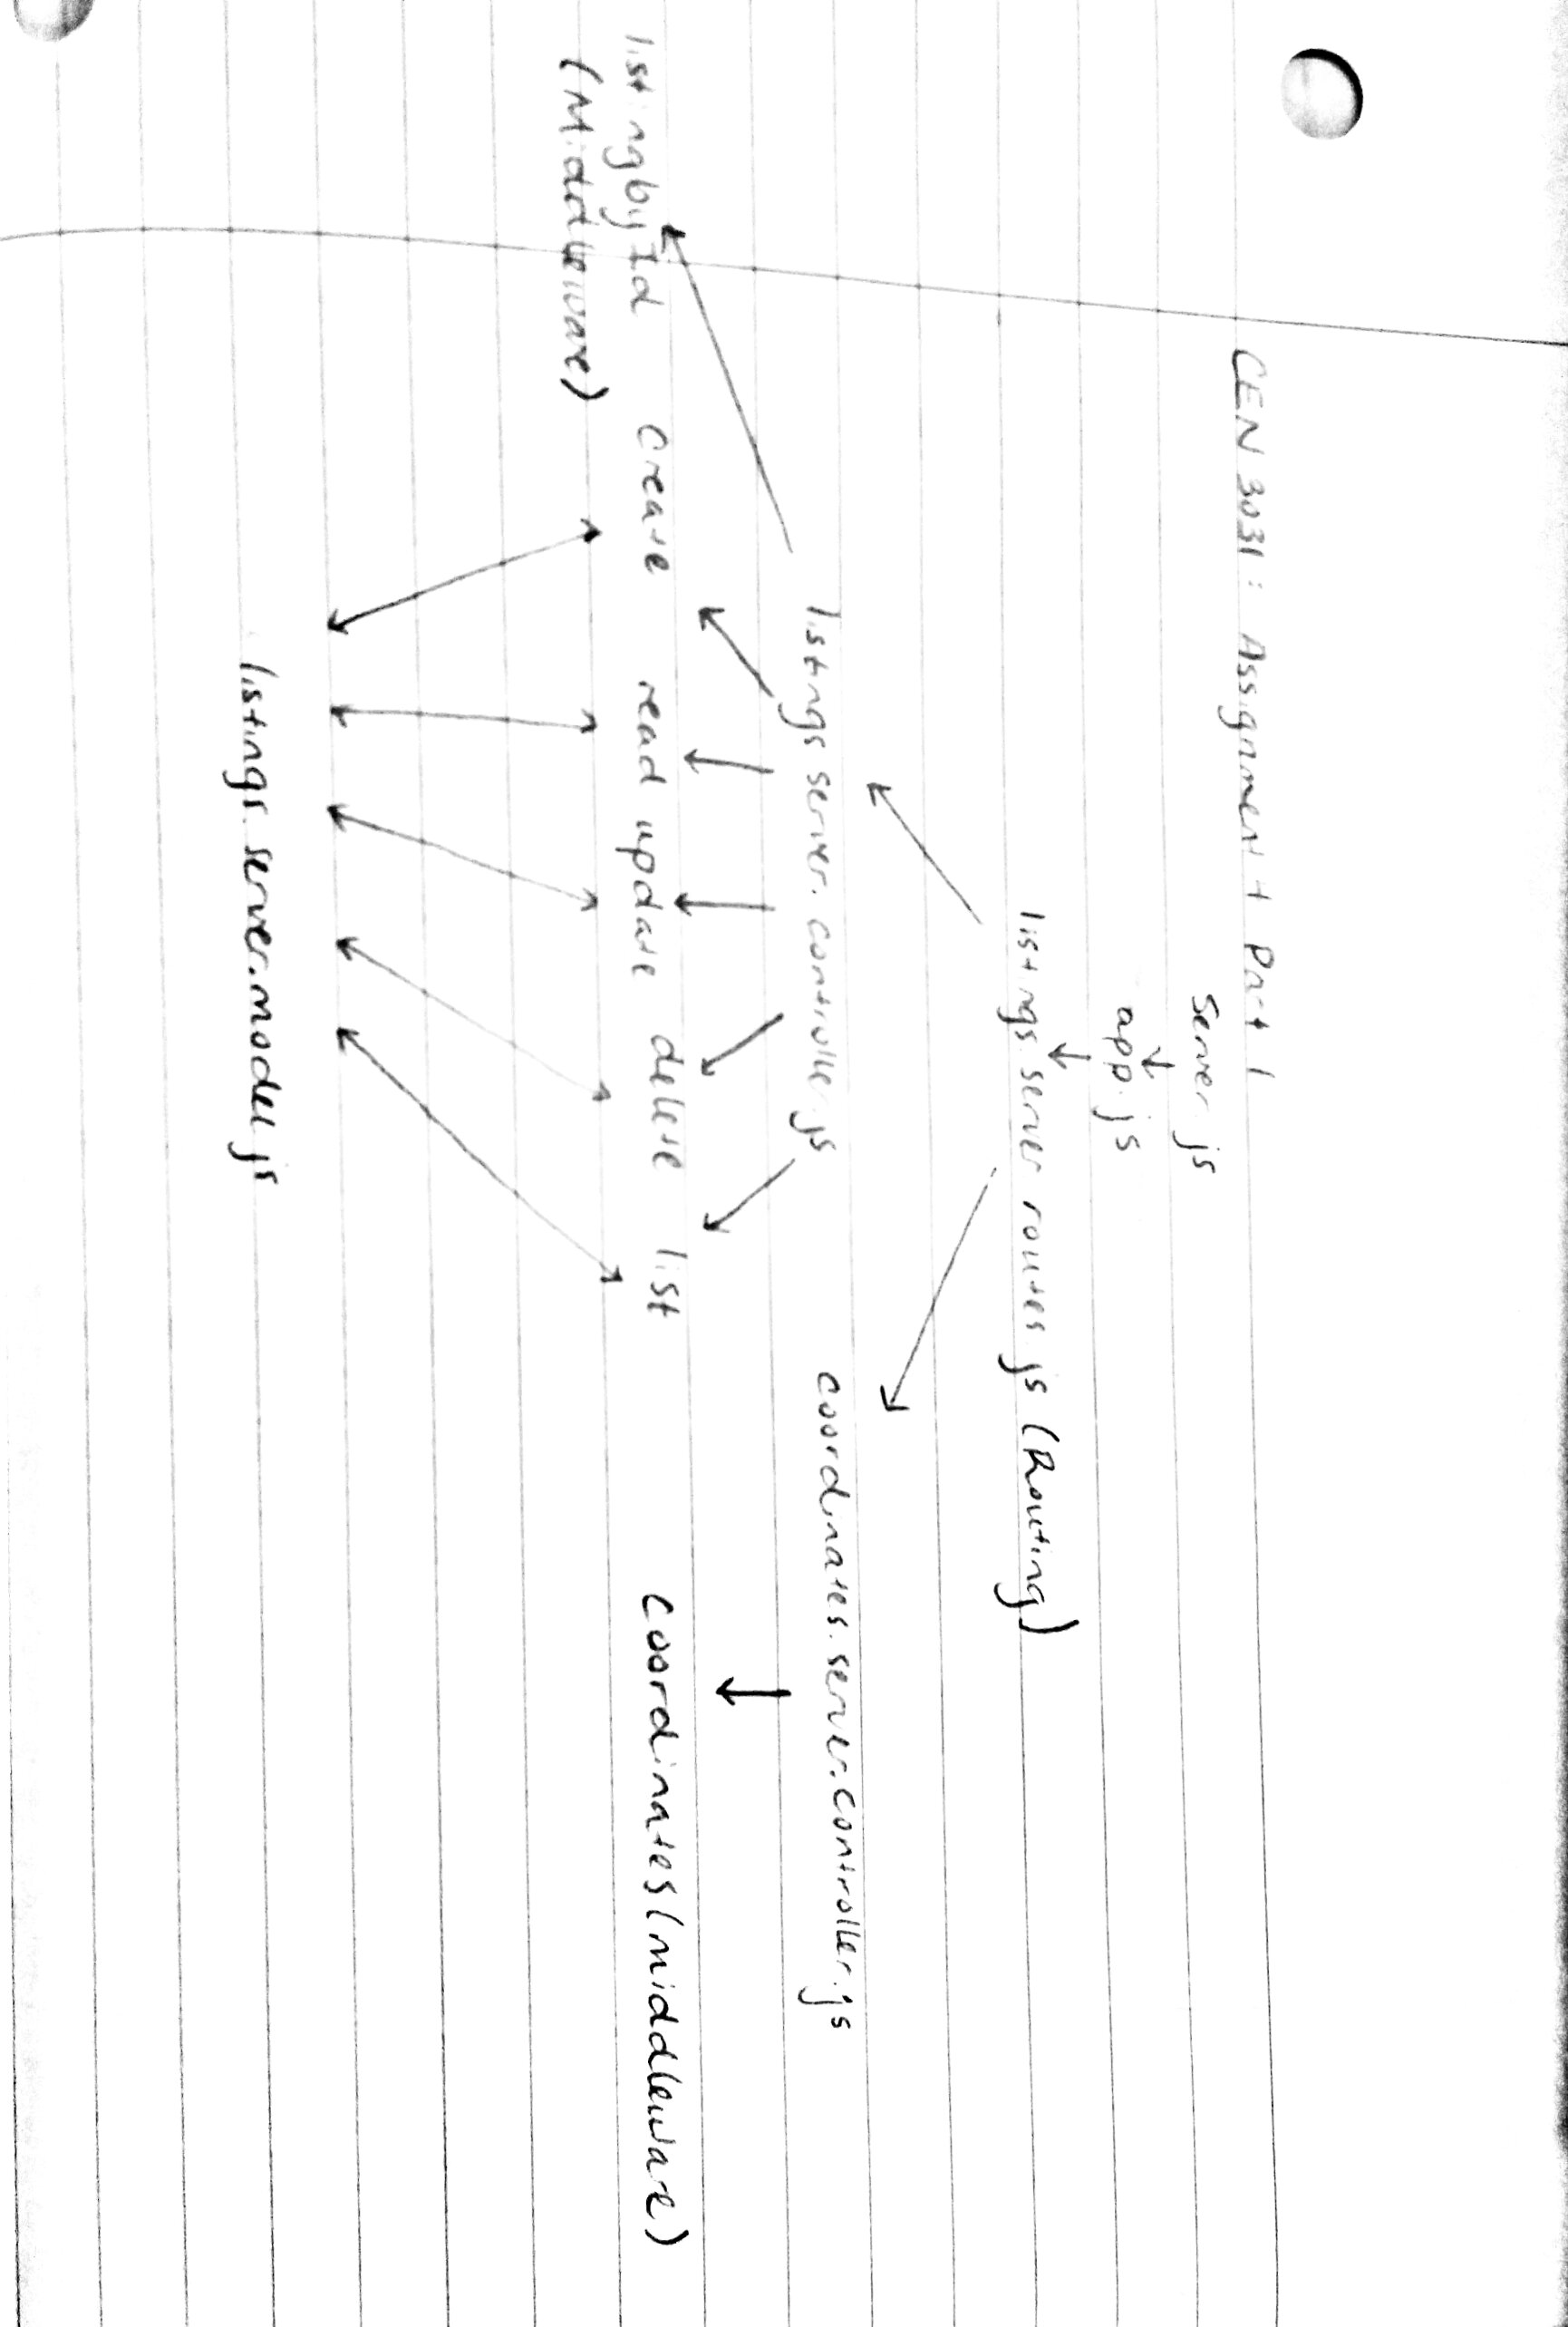 CEN 3031: Assignment Part 1
server.js
app.js
listings.server.routes.js (Routing)
listings.server.controller.js coordinates.server.controller.js
listingbyId create read update delete list coordinates (middleware)
(Middleware)
listings.server.model.js